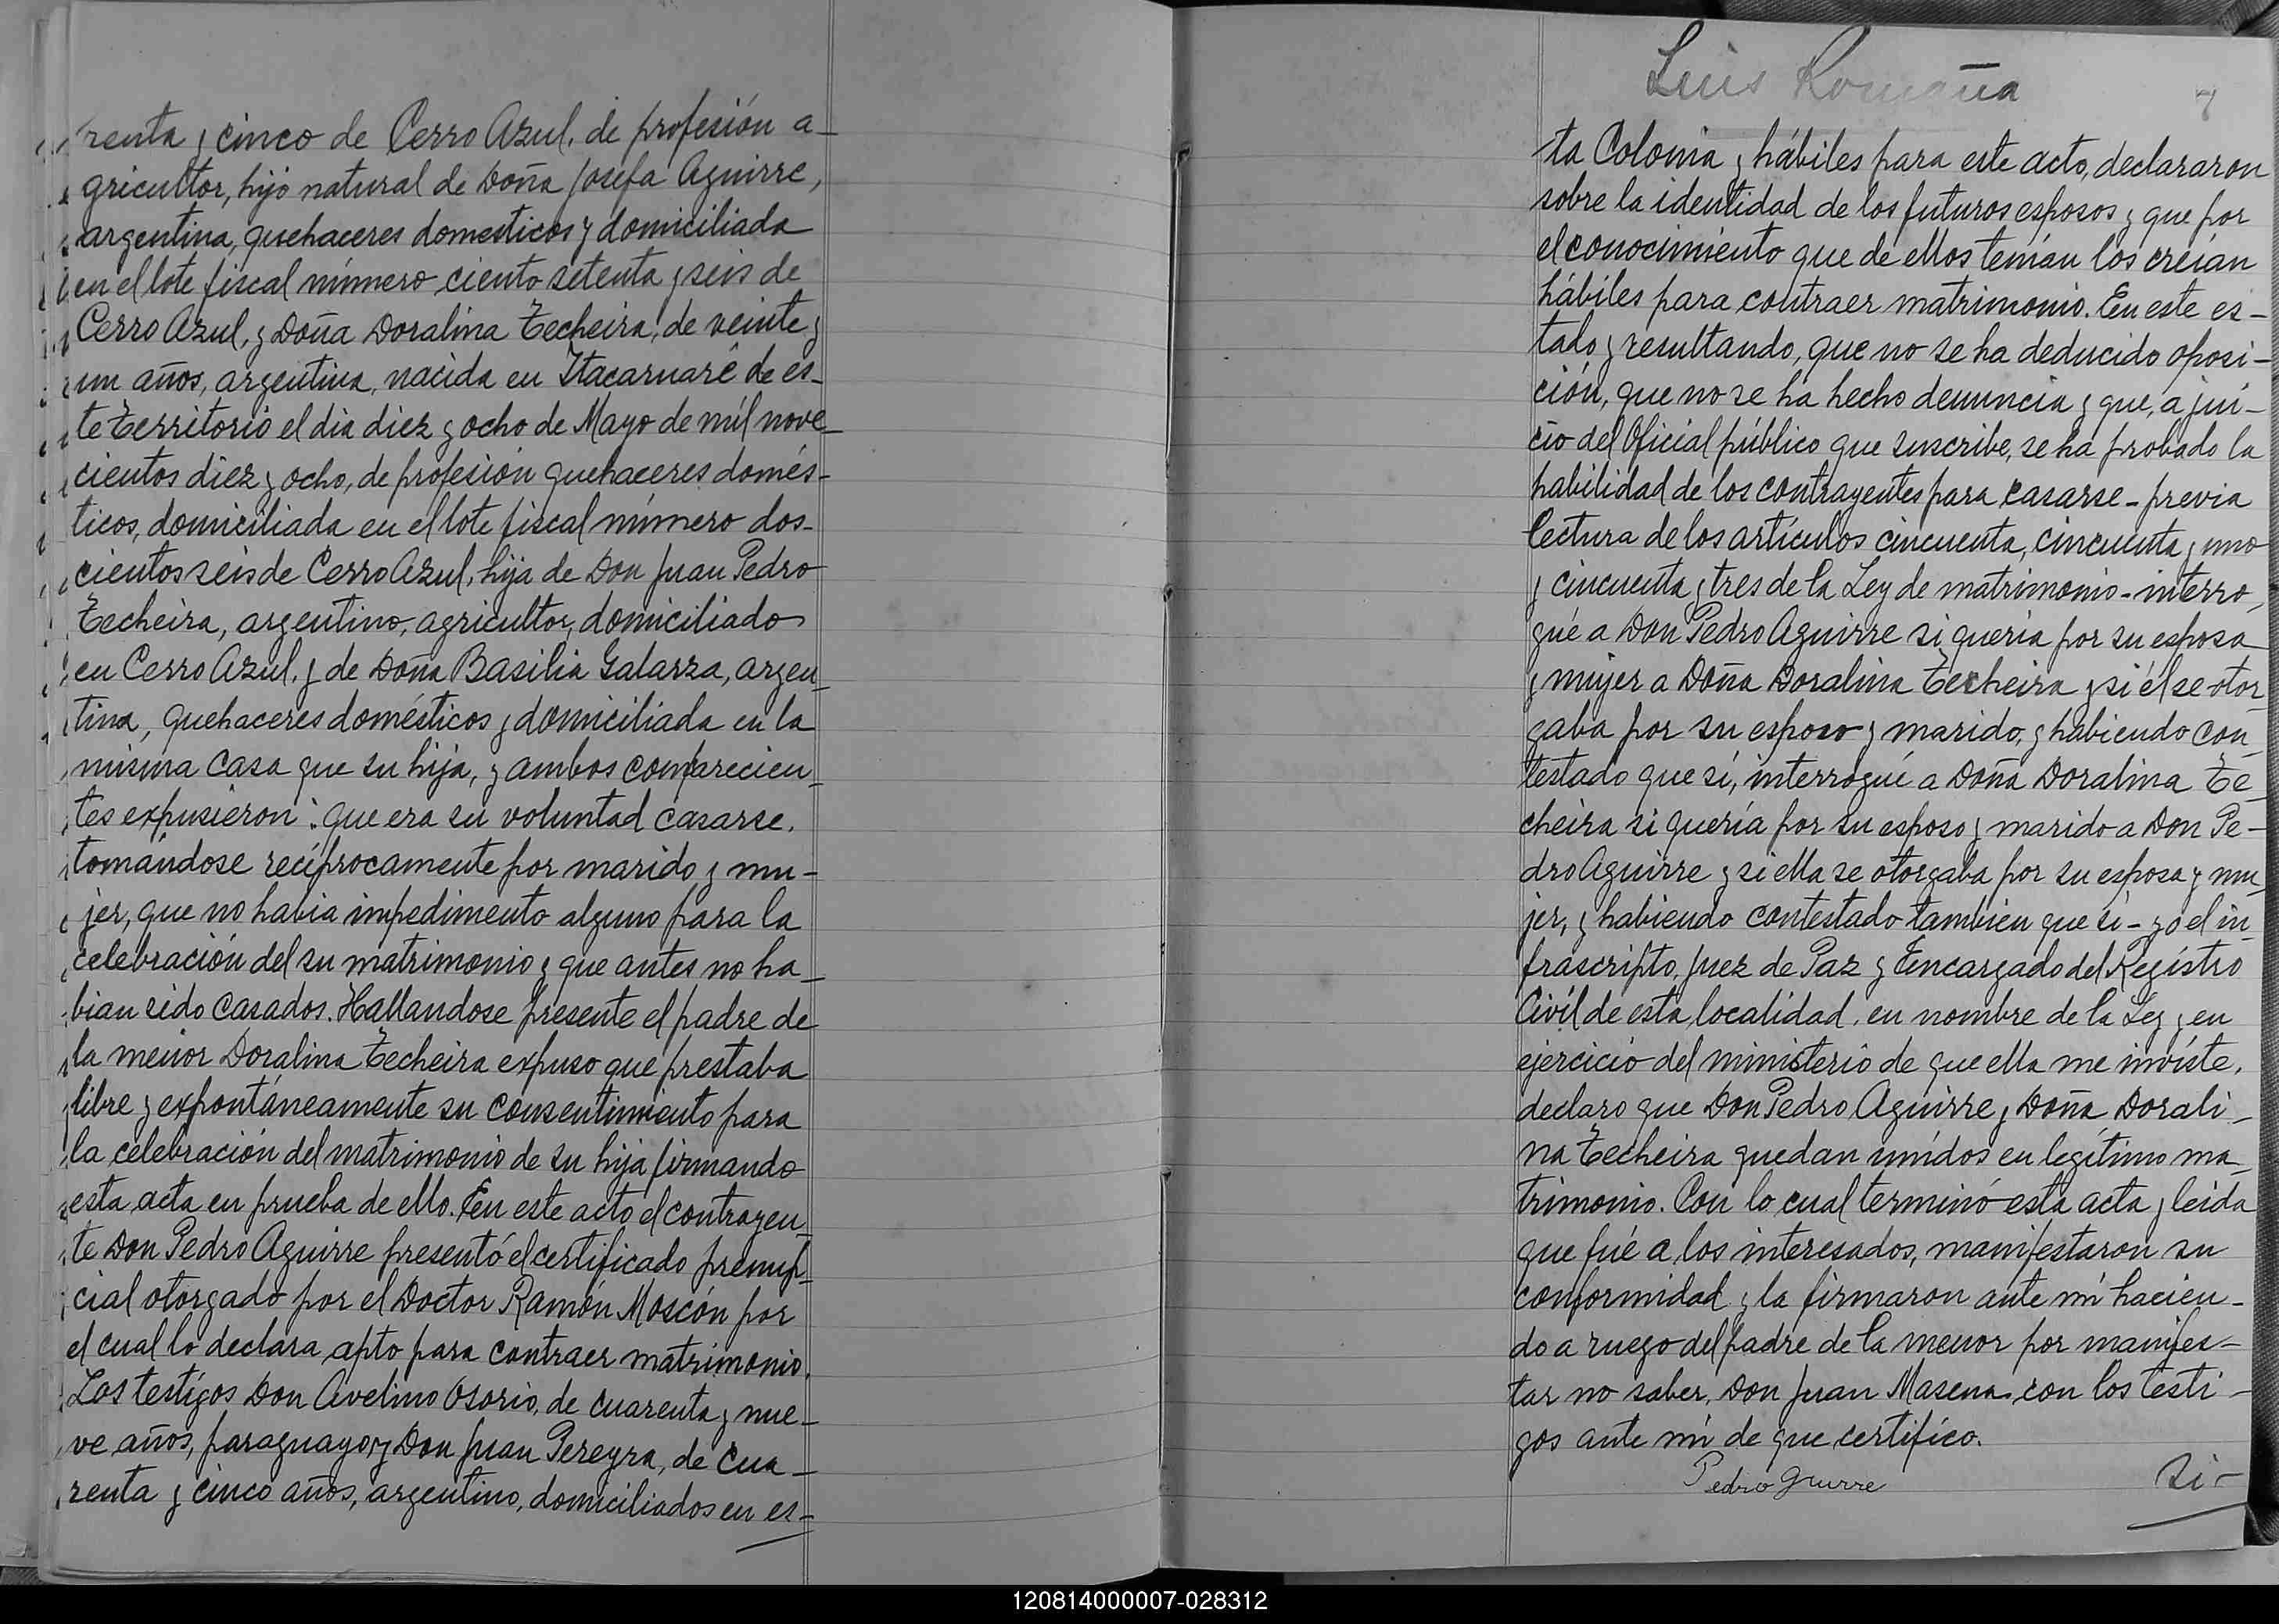 renta y cinco de Cerro Azul, de profesión a-
gricultor, hijo natural de Doña Josefa Aguirre,
argentina, quehaceres domesticos y domiciliada
en el lote fiscal número ciento setenta y seis de
Cerro Azul, y Doña Doralina Techeira, de veinte y
un años, argentina, nacida en Itacaruaré de es-
te Territorio el dia diez y ocho de Mayo de mil nove-
cientos diez y ocho, de profesión quehaceres domés-
ticos, domiciliada en el lote fiscal número dos-
cientos seis de Cerro Azul, hija de Don Juan Pedro
Techeira, argentino, agricultor, domiciliado
en Cerro Azul, y de Doña Basilia Galarza, argen-
tina, quehaceres domésticos y domiciliada en la
misma casa que su hija, y ambos comparecien-
tes expusieron: que era su voluntad casarse,
tomándose recíprocamente por marido y mu-
jer, que no habia impedimento alguno para la
celebración del su matrimonio y que antes no ha-
bian sido casados. Hallandose presente el padre de
la menor Doralina Techeira expuso que prestaba
libre y expontáneamente su consentimiento para
la celebración del matrimonio de su hija firmando
esta acta en prueba de ello. En este acto el contrayen-
te Don Pedro Aguirre presentó el certificado prenup-
cial otorgado por el Doctor Ramón Moscón por
el cual lo declara apto para contraer matrimonio.
Los testigos Don Avelino Osorio, de cuarenta y nue-
ve años, paraguayo y Don Juan Pereyra, de cua-
renta y cinco años, argentino, domiciliados en es-
Luis Romaña
7
ta Colonia y hábiles para este acto, declararon
sobre la identidad de los futuros esposos y que por
el conocimiento que de ellos tenían los creían
hábiles para contraer matrimonio. En este es-
tado y resultando, que no se ha deducido oposi-
ción, que no se ha hecho denuncia y que, a jui-
cio del Oficial público que suscribe, se ha probado la
habilidad de los contrayentes para casarse - previa
lectura de los artículos cincuenta, cincuenta y uno
y cincuenta y tres de la Ley de matrimonio - interro-
gué a Don Pedro Aguirre si quería por su esposa
y mujer a Doña Doralina Techeira y si él se otor-
gaba por su esposo y marido, y habiendo con-
testado que sí, interrogué a Doña Doralina Te-
cheira si quería por su esposo y marido a Don Pe-
dro Aguirre y si ella se otorgaba por su esposa y mu-
jer, y habiendo contestado tambien que si - yo el in-
frascripto, Juez de Paz y Encargado del Registro
Civil de esta localidad, en nombre de la Ley y en
ejercicio del ministerio de que ella me inviste,
declaro que Don Pedro Aguirre y Doña Dorali-
na Techeira quedan unidos en legítimo ma-
trimonio. Con lo cual terminó esta acta y leida
que fué a los interesados, manifestaron su
conformidad y la firmaron ante mí hacien-
do a ruego del padre de la menor por manifes-
tar no saber, Don Juan Masena con los testi-
gos ante mí de que certifico.
Pedro Guirre
Si-
120814000007-028312